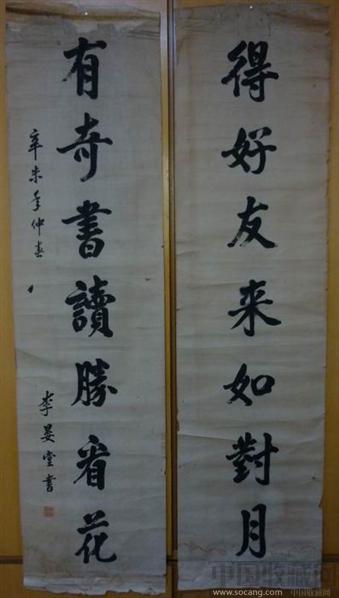 得好友来如對月
有奇書讀勝看花
辛未年仲春
李晏堂書
中国收藏网
www.socang.com 中国收藏网